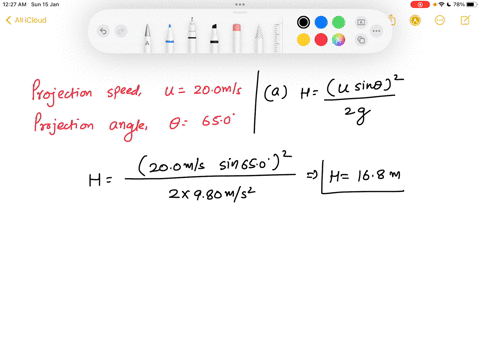 12:27 AM Sun 15 Jan
78%
AltiCloud
Projection speed, u = 20.0m/s
Projection angle, θ = 65.0°
(a) H = (u sinθ)² / 2g
H = (20.0m/s sin65.0°)² / 2×9.80m/s² ⇒ H = 16.8 m